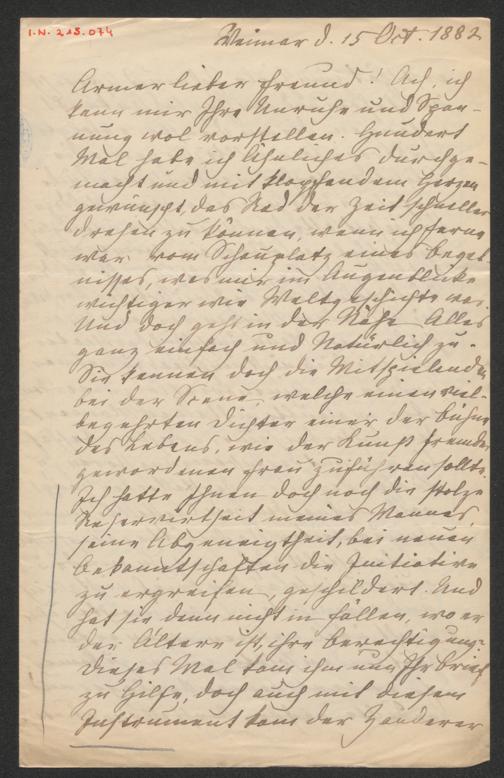 I.N. 215.074
Weimar d. 15 Oct. 1882
Armer lieber Freund! Ach, ich
kann mir Ihre Unruhe und Span-
nung wol vorstellen. Hundert
Mal habe ich Ähnliches durchge-
macht und mit klopfendem Herzen
gewünscht, das Rad der Zeit schneller
drehen zu können, wenn ich ferne
war vom Schauplatz eines Begeb
nisses, was mir im Augenblicke
wichtiger wie Weltgeschichte war.
Und doch geht in der Nähe Alles
ganz einfach und Natürlich zu.
Sie kennen doch die Mitspielenden
bei der Scene, welche einen viel-
begehrten Dichter einer der Bühne
des Lebens, wie der Kunst fremde
gewordenen Frau zuführen sollte.
Ich hatte Ihnen doch noch die stolze
Reservirtheit meines Mannes,
seine Abgeneigtheit, bei neuen
Bekanntschaften die Initiative
zu ergreifen, geschildert. Und
hat sie denn nicht in Fällen, wo er
der Ältere ist, ihre Berechtigung?
Dieses Mal kam ihm nun Ihr Brief
zu Hilfe, doch auch mit diesem
Instrument kam der Zauderer